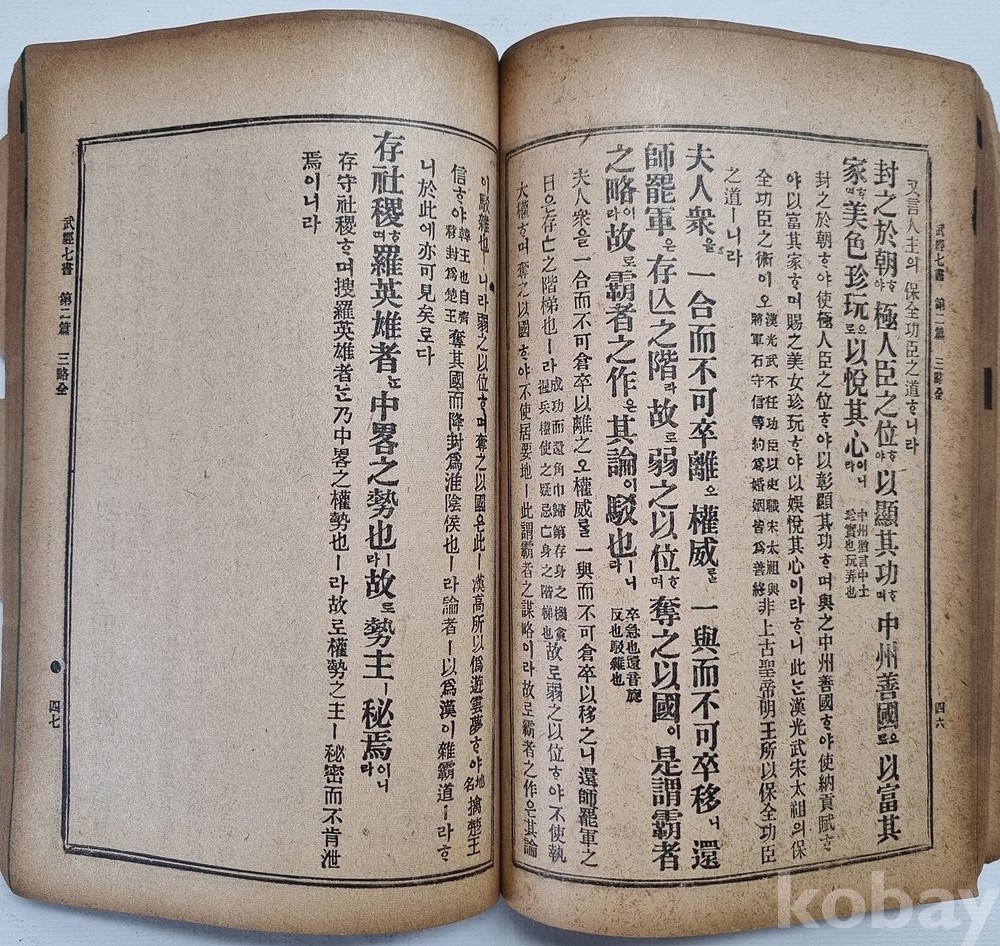 武經七書 第二篇 三略全
四六
又言人主의保全功臣之道ᄒᆞ니라
封之於朝ᄒᆞ야極人臣之位ᄒᆞ야以顯其功ᄒᆞ며中州善國으로以富其
家ᄒᆞ며美色珍玩으로以悅其心이니라 中州猶言中土 珍寶也玩弄也
封之於朝ᄒᆞ야使極人臣之位ᄒᆞ야以彰顯其功ᄒᆞ며與之中州善國ᄒᆞ야使納貢賦ᄒᆞ
야以富其家ᄒᆞ며賜之美女珍玩ᄒᆞ야以娛悅其心이라ᄒᆞ니此ᄂᆞᆫ漢光武宋太祖의保
全功臣之術이오 漢光武不任功臣以吏職宋太祖與 將軍石守信等約爲婚姻皆爲善終 非上古聖帝明王所以保全功臣
之道ㅣ니라
夫人衆을一合而不可卒離으權威를一與而不可卒移니還
師罷軍은存亡之階라故로弱之以位ᄒᆞ며奪之以國이是謂霸者
之略이라故로霸者之作은其論이駁也ㅣ니라 卒急也還音旋 反也駁雜也
夫人衆을一合而不可倉卒以離之오權威를一與而不可倉卒以移之니還師罷軍之
日은存亡之階梯也ㅣ라 成功而還角巾歸第存身之機貪 握兵權使之疑忌亡身之階梯也 故로弱之以位ᄒᆞ야不使執
大權ᄒᆞ며奪之以國ᄒᆞ야不使居要地ㅣ此謂霸者之謀略이라故로霸者之作은其論
이駁雜也ㅣ니라弱之以位ᄒᆞ며奪之以國은此ㅣ漢高所以僞遊雲夢ᄒᆞ야 地名 擒楚王
信ᄒᆞ야 韓王也自齊 移封爲楚王 奪其國而降封爲淮陰侯也ㅣ라論者ㅣ以爲漢이雜霸道ㅣ라ᄒᆞ
니於此에亦可見矣로다
存社稷ᄒᆞ며羅英雄者ᄂᆞᆫ中畧之勢也ㅣ라故로勢主ㅣ秘焉이니라
存守社稷ᄒᆞ며搜羅英雄者ᄂᆞᆫ乃中畧之權勢也ㅣ라故로權勢之主ㅣ秘密而不肯泄
焉이니라
武經七書 第二篇 三略全
四七
kobay